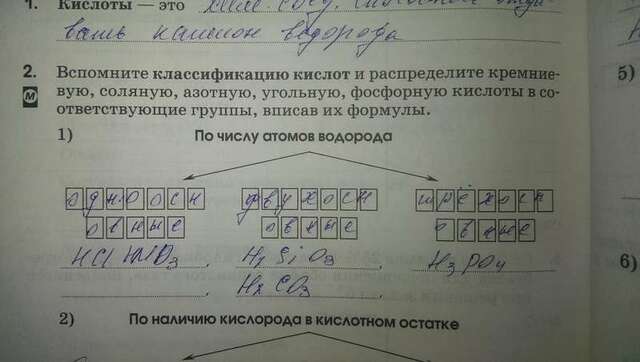 1. Кислоты — это хим. соед.
вать катион водорода
2. Вспомните классификацию кислот и распределите кремние-
М вую, соляную, азотную, угольную, фосфорную кислоты в со-
ответствующие группы, вписав их формулы.
5)
1) По числу атомов водорода
одноосн двухосн трёхосн
овные овные овные
HCl HNO3, H2SiO3, H3PO4
6)
H2CO3
2) По наличию кислорода в кислотном остатке